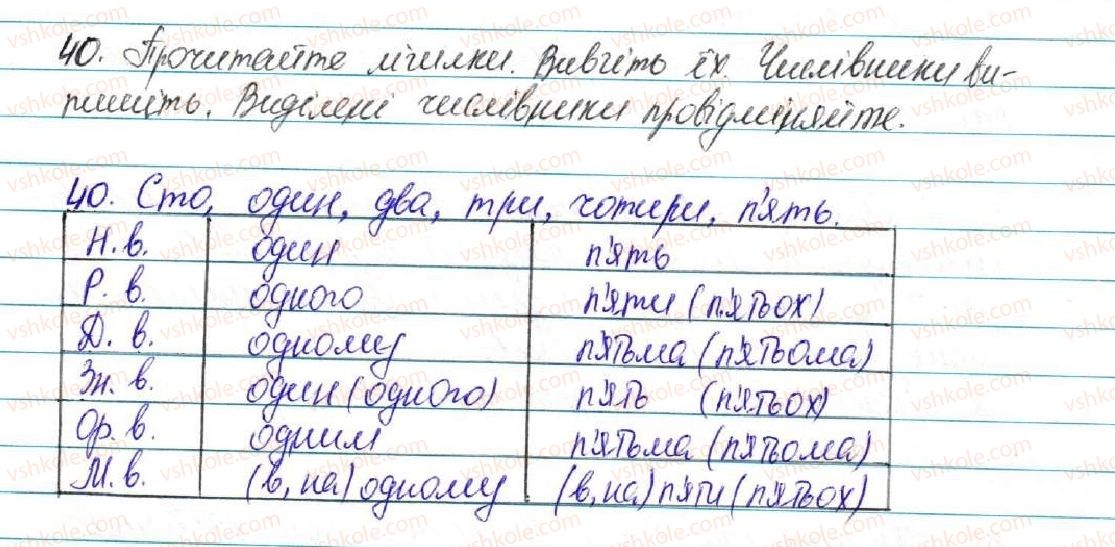 40. Прочитайте лічилки. Вивчіть їх. Числівники ви-
пишіть. Виділені числівники провідміняйте.
40. Сто, один, два, три, чотири, п'ять.
Н. в. один п'ять
Р. в. одного п'яти (п'ятьох)
Д. в. одному п'ятьма (п'ятьома)
Зн. в. один (одного) п'ять (п'ятьох)
Ор. в. одним п'ятьма (п'ятьома)
М. в. (в, на) одному (в, на) п'яти (п'ятьох)